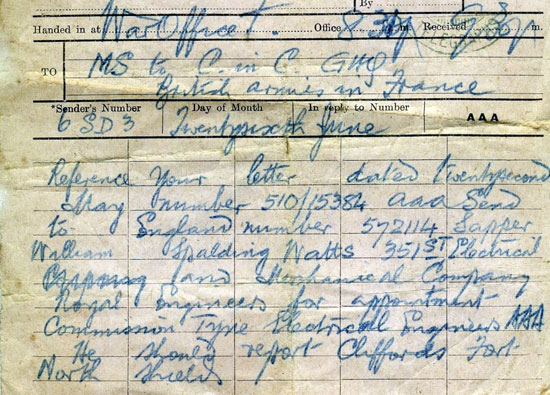 By
Handed in at War Office. Office 8.30p Received
TO MS to C. in C. GHQ
British armies in France
*Sender's Number Day of Month In reply to Number AAA
6 SD 3 Twentysixth June
Reference Your letter dated twentysecond
May number 510/15384 aaa Send
to England number 572114 Sapper
William Spalding Watts 351ST Electrical
and Mechanical Company
Royal Engineers for appointment
Commission Type Electrical Engineers AAA
He should report Cliffords Fort
North Shields